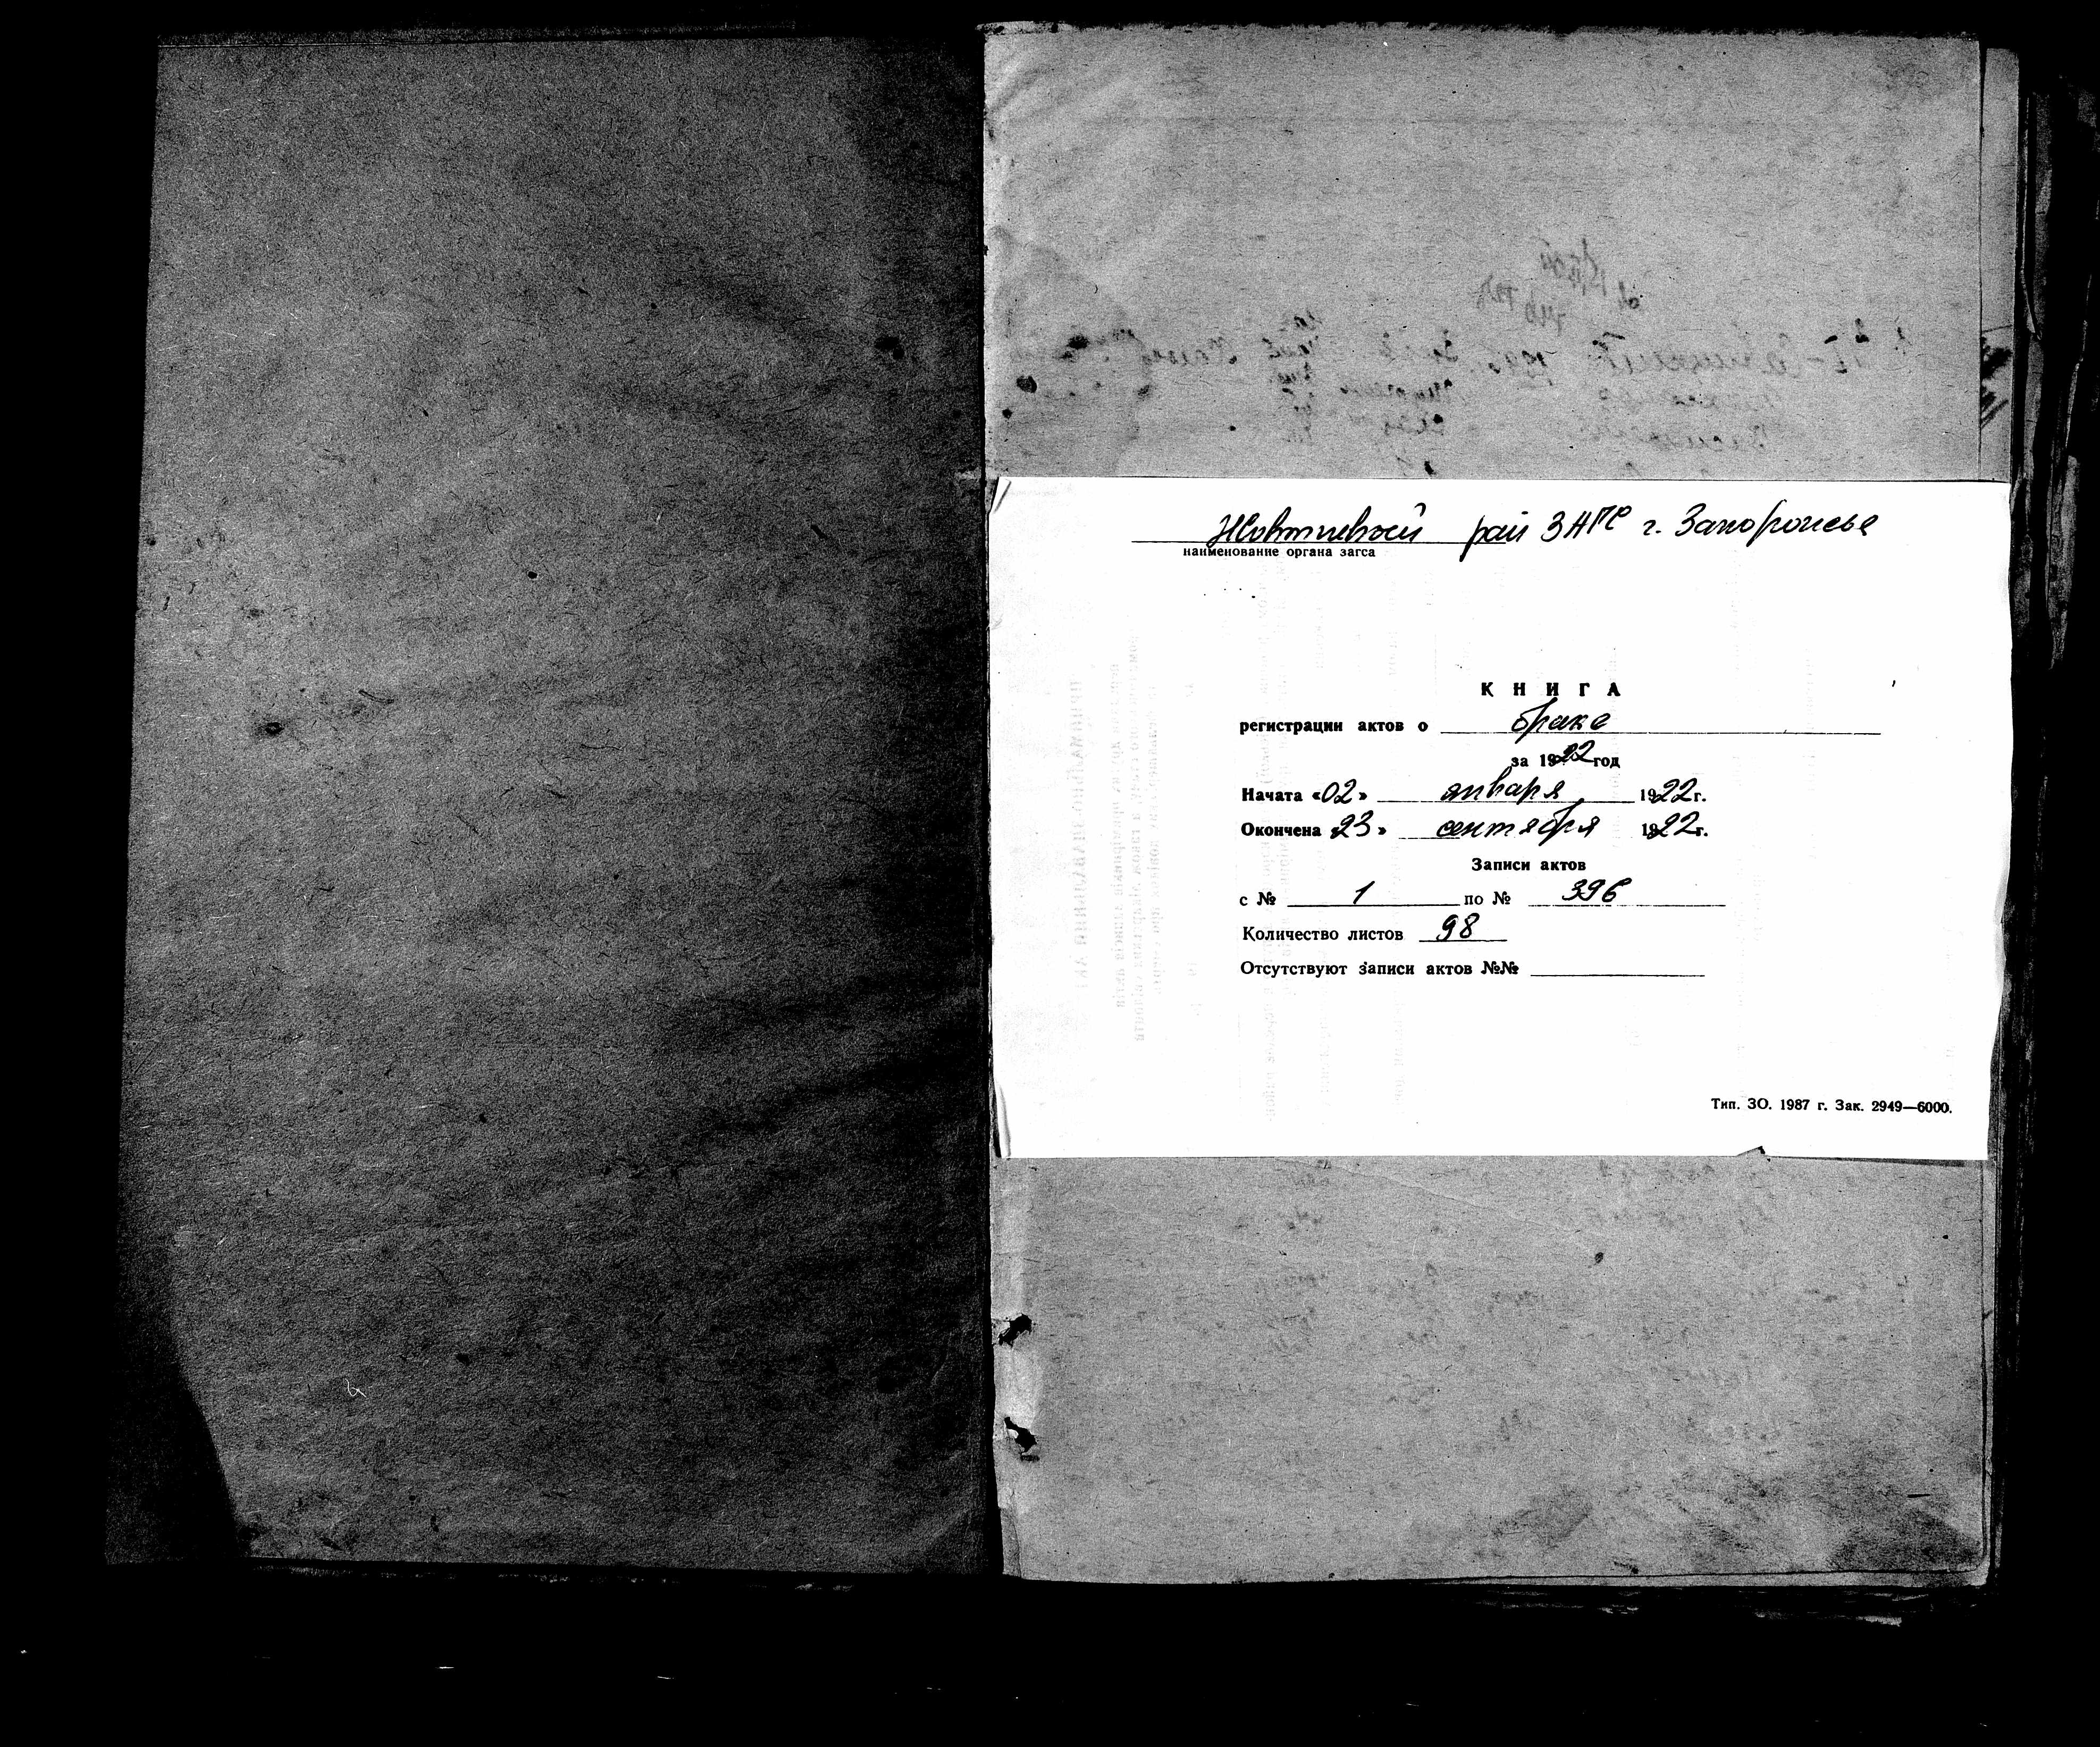 Жовтневый рай ЗАГС г. Запорожье
наименование органа загса
КНИГА
регистрации актов о браке
за 1922 год
Начата «02» января 1922 г.
Окончена «23» сентября 1922 г.
Записи актов
с № 1 по № 396
Количество листов 98
Отсутствуют записи актов №№
Тип. ЗО. 1987 г. Зак. 2949—6000.